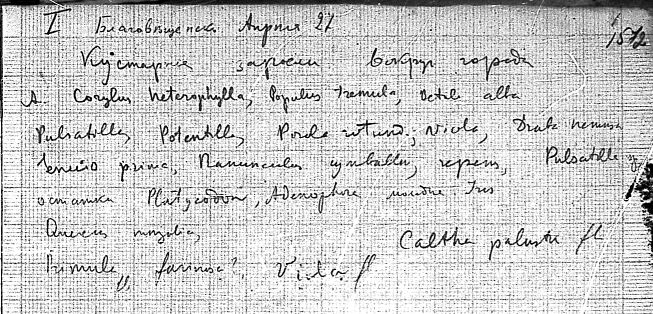 I Благовещенск Апреля 27
1572
Кустарные заросли вокруг города
A. Corylus heterophylla, Populus tremula, Betula alba
Pulsatilla, Potentilla, Viola, Draba nemorosa
Senecio Ranunculus repens, Pulsatilla
остатки Platycodon, Adenophora Iris
Quercus mongolica
Caltha palustr fl
Primula farinosa?, Viola fl